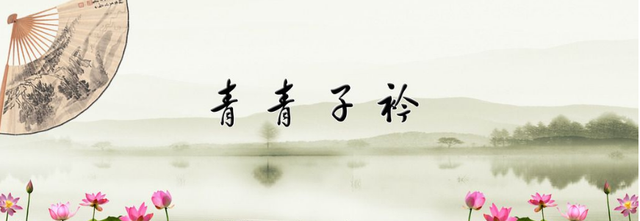 青青子衿